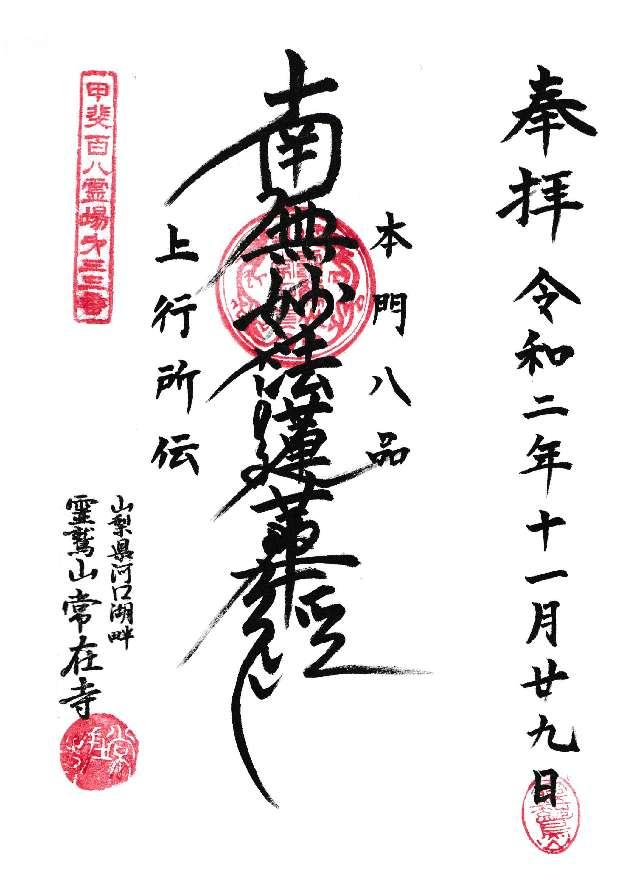 奉拝 令和二年十一月廿九日
本門八品
南無妙法蓮華経
上行所伝
山梨県河口湖畔
霊鷲山常在寺
甲斐百八霊場第三三番